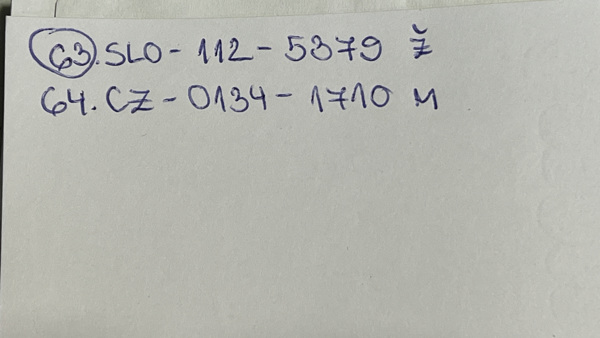 63. SLO - 112 - 5379 Ž
64. CZ - 0134 - 1710 M